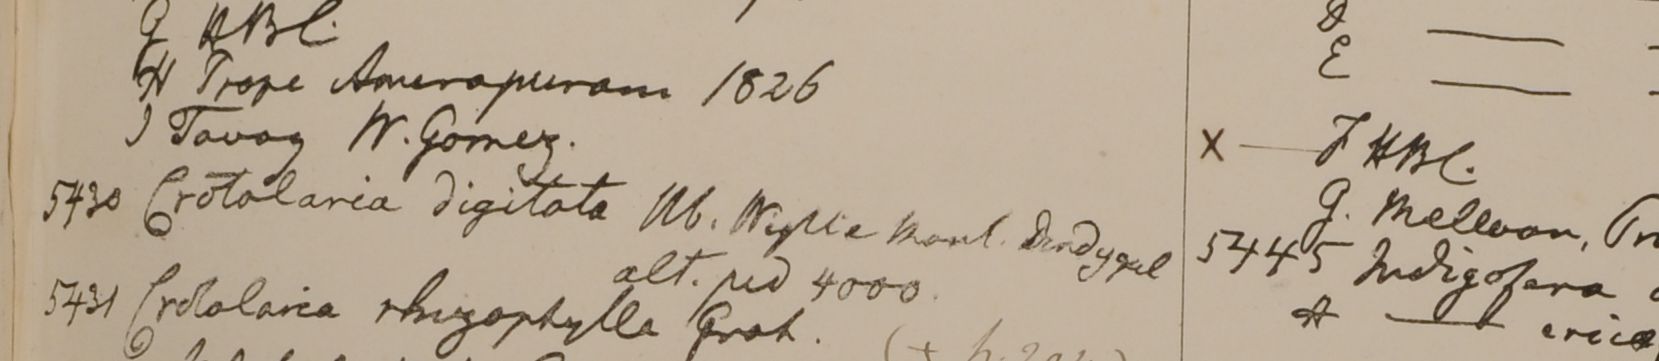 G HBC.
H Prope Amerapuram 1826
I Tavoy W. Gomez.
5430 Crotolaria digitata Hb. Wight mont. Dindygul
alt. ped 4000.
5431 Crotolaria rhizophylla Grah.
D
E
X — F HBC.
G. Melloon, Pro
5445 Indigofera
A — erica